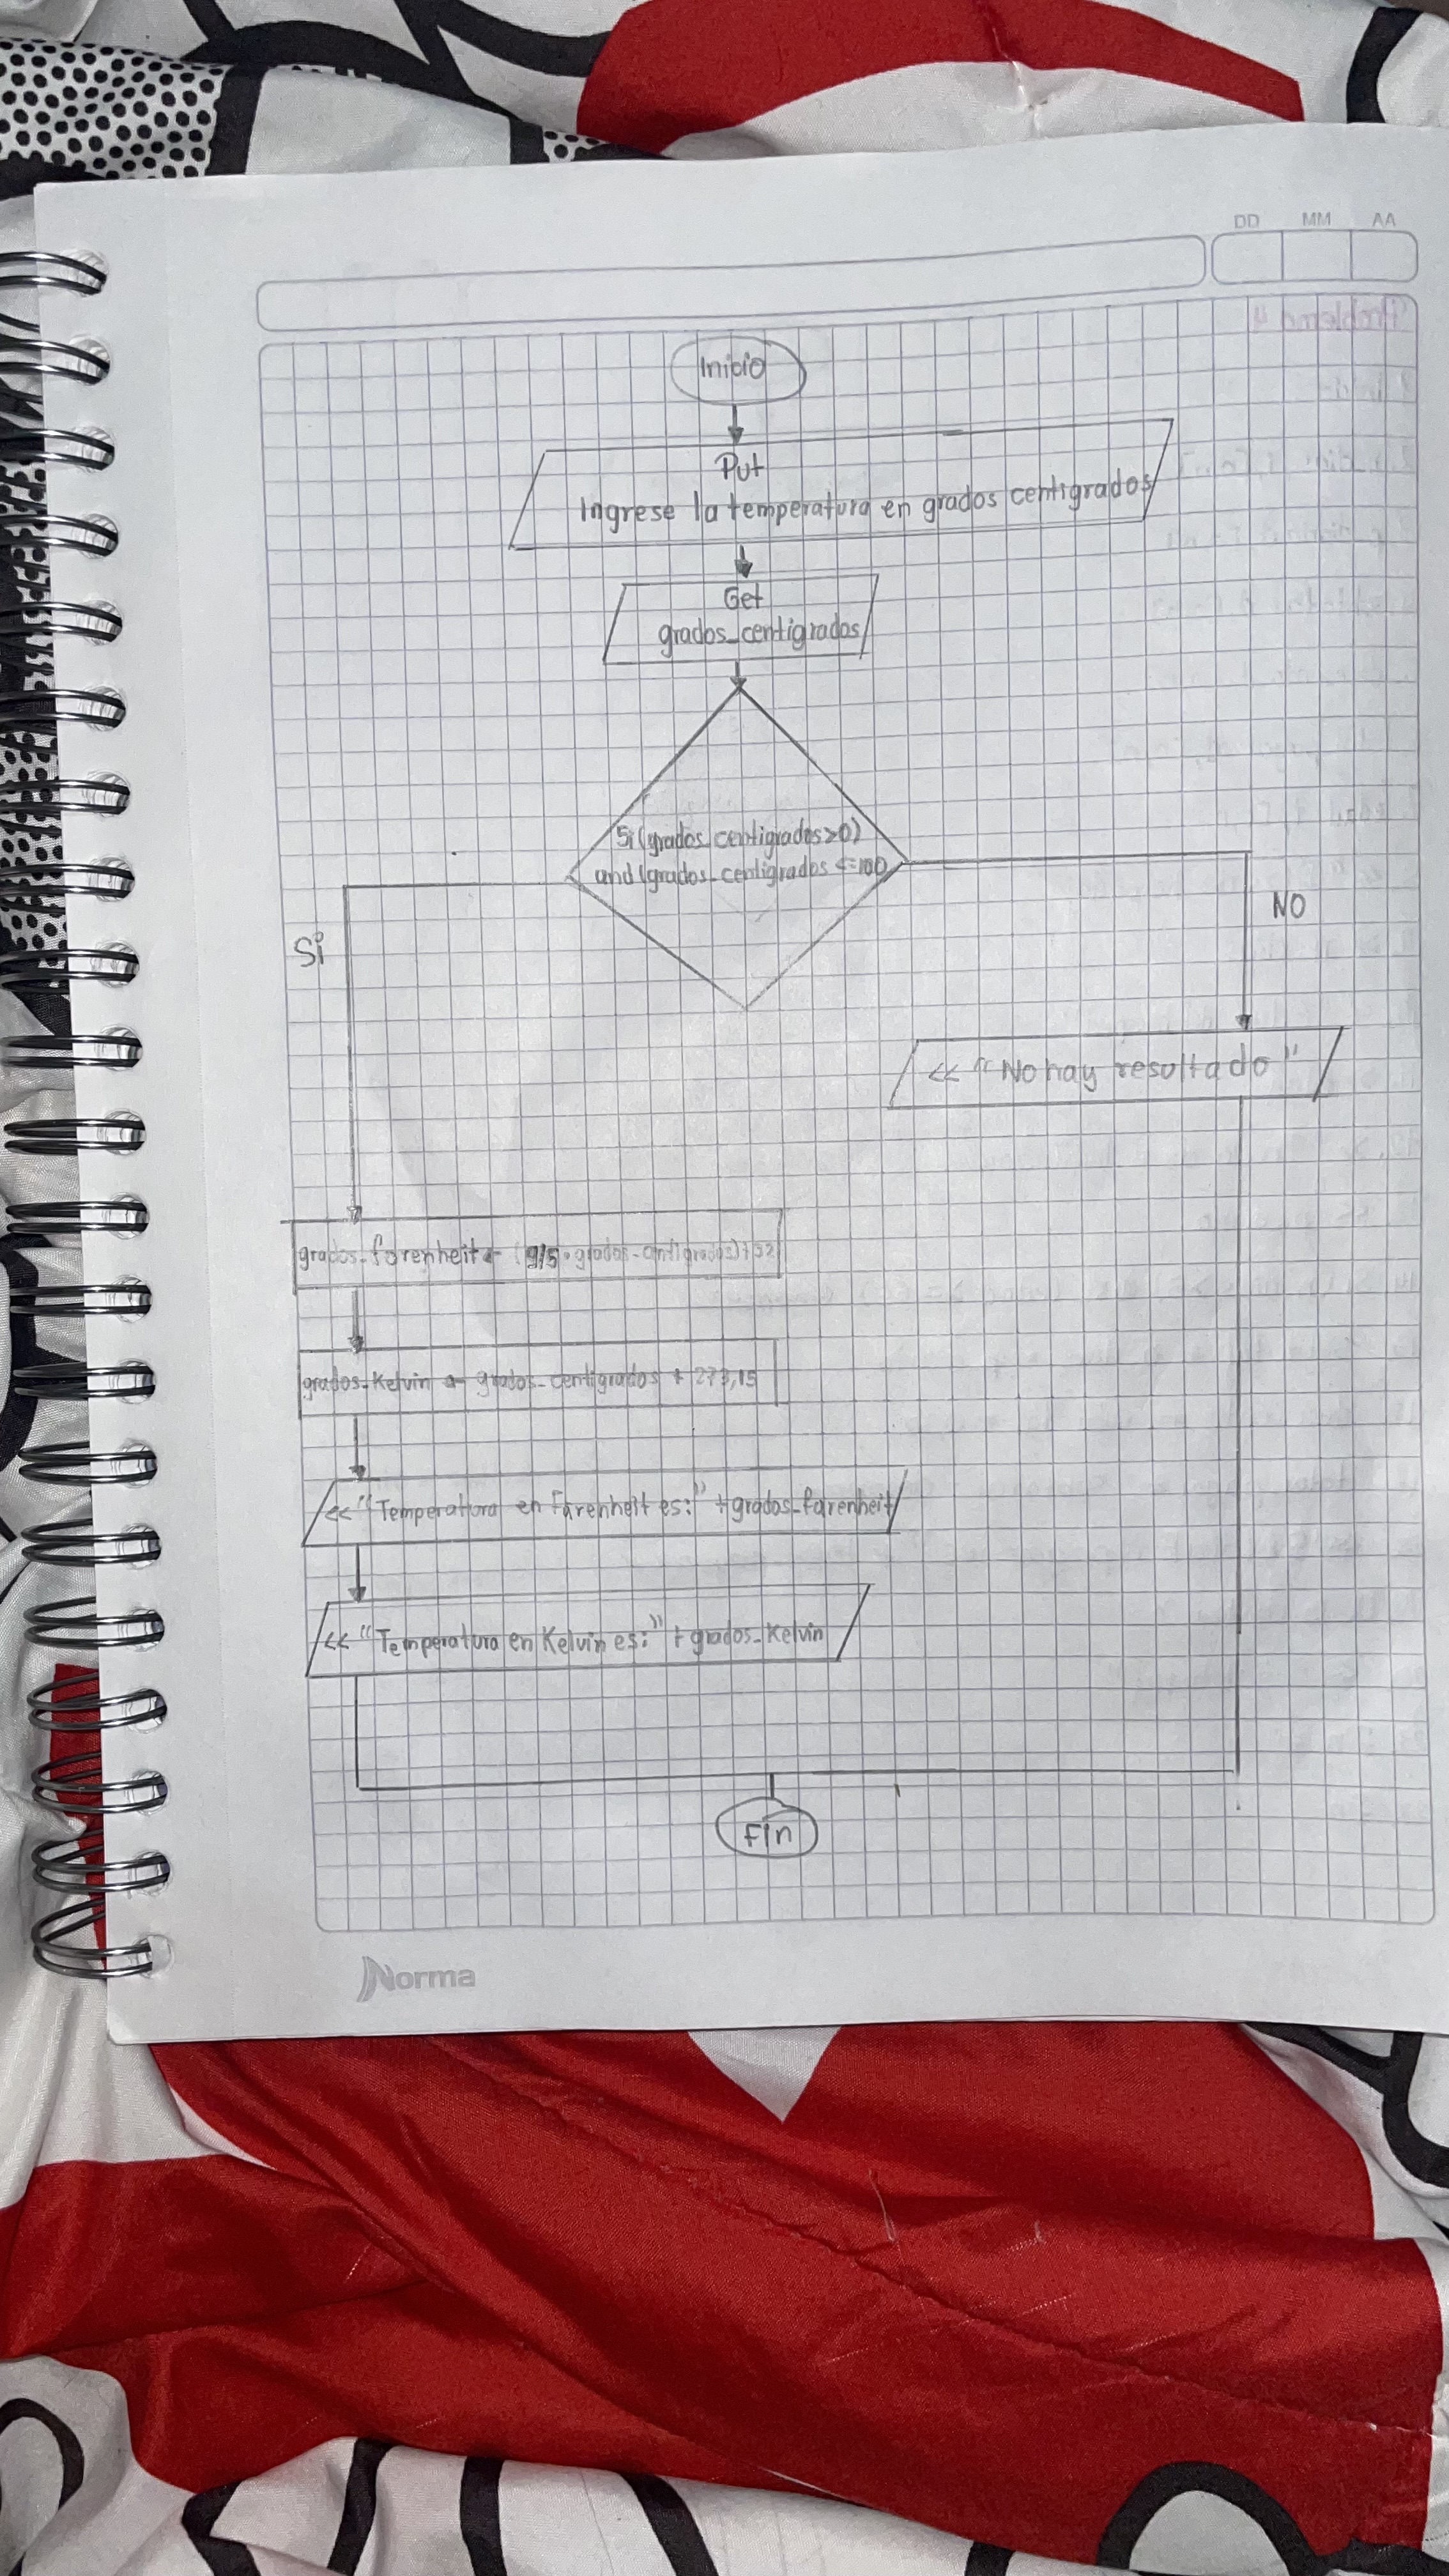 DD MM AA
Inicio
Put
Ingrese la temperatura en grados centigrados
Get
grados_centigrados
Si (grados_centigrados >0)
and (grados_centigrados <=100
Si
NO
<< "No hay resultado"
grados_farenheit ← (9/5 * grados_centigrados) + 32
grados_Kelvin ← grados_centigrados + 273,15
<< "Temperatura en Farenheit es:" + grados_farenheit
<< "Temperatura en Kelvin es:" + grados_Kelvin
Fin
Norma